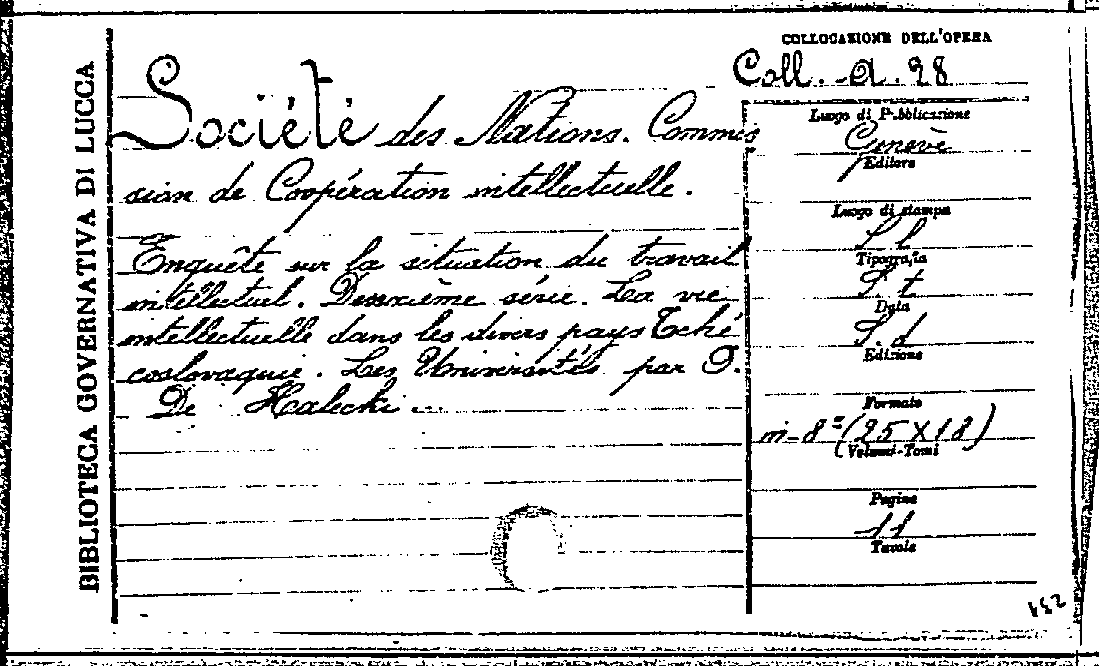 BIBLIOTECA GOVERNATIVA DI LUCCA
COLLOCAZIONE DELL'OPERA
Coll. - A. 28
Société des Nations. Commis
sion de Coopération intellectuelle.
Enquête sur la situation du travail
intellectuel. Deuxième série. La vie
intellectuelle dans les divers pays Tché
coslovaquie. Les Universités par O.
De Halecki ...
Luogo di Pubblicazione
Genève
Editore
Luogo di stampa
S l
Tipografia
S. t
Data
S. d
Edizione
Formato
in-8º (25 X 18)
Volumi-Tomi
Pagine
11
Tavole